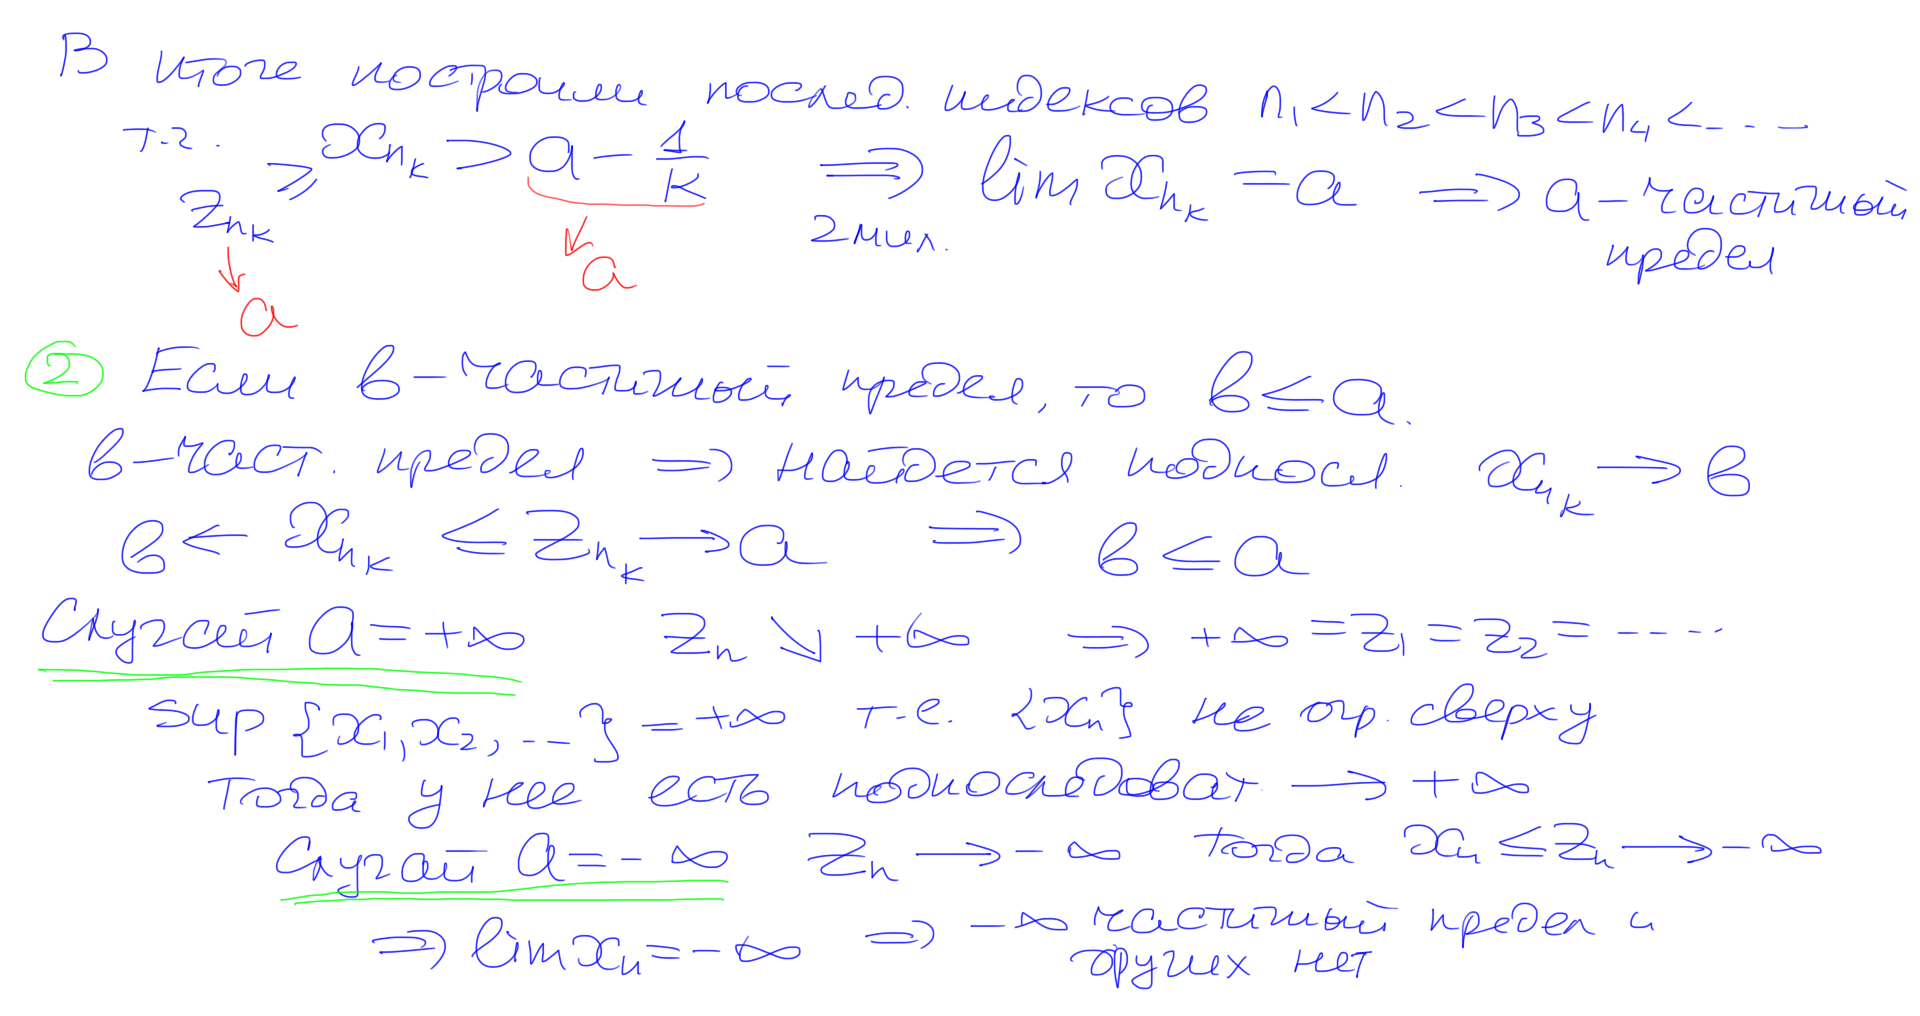 В итоге построили послед. индексов n₁ < n₂ < n₃ < n₄ < ...
т.ч. z_{n_k} ≥ x_{n_k} > a - 1/k ⟹ lim x_{n_k} = a ⟹ a - частичный
2 мил. предел
↓ a ↓ a
② Если b - частичный предел, то b ≤ a.
b - част. предел ⟹ найдется подпосл. x_{n_k} → b
b ← x_{n_k} ≤ z_{n_k} → a ⟹ b ≤ a
Случай a = +∞ z_n ↘ +∞ ⟹ +∞ = z₁ = z₂ = ....
sup {x₁, x₂, ...} = +∞ т.е. {x_n} не огр. сверху
Тогда у нее есть подпоследоват. → +∞
Случай a = -∞ z_n → -∞ Тогда x_n ≤ z_n → -∞
⟹ lim x_n = -∞ ⟹ -∞ частичный предел и
других нет